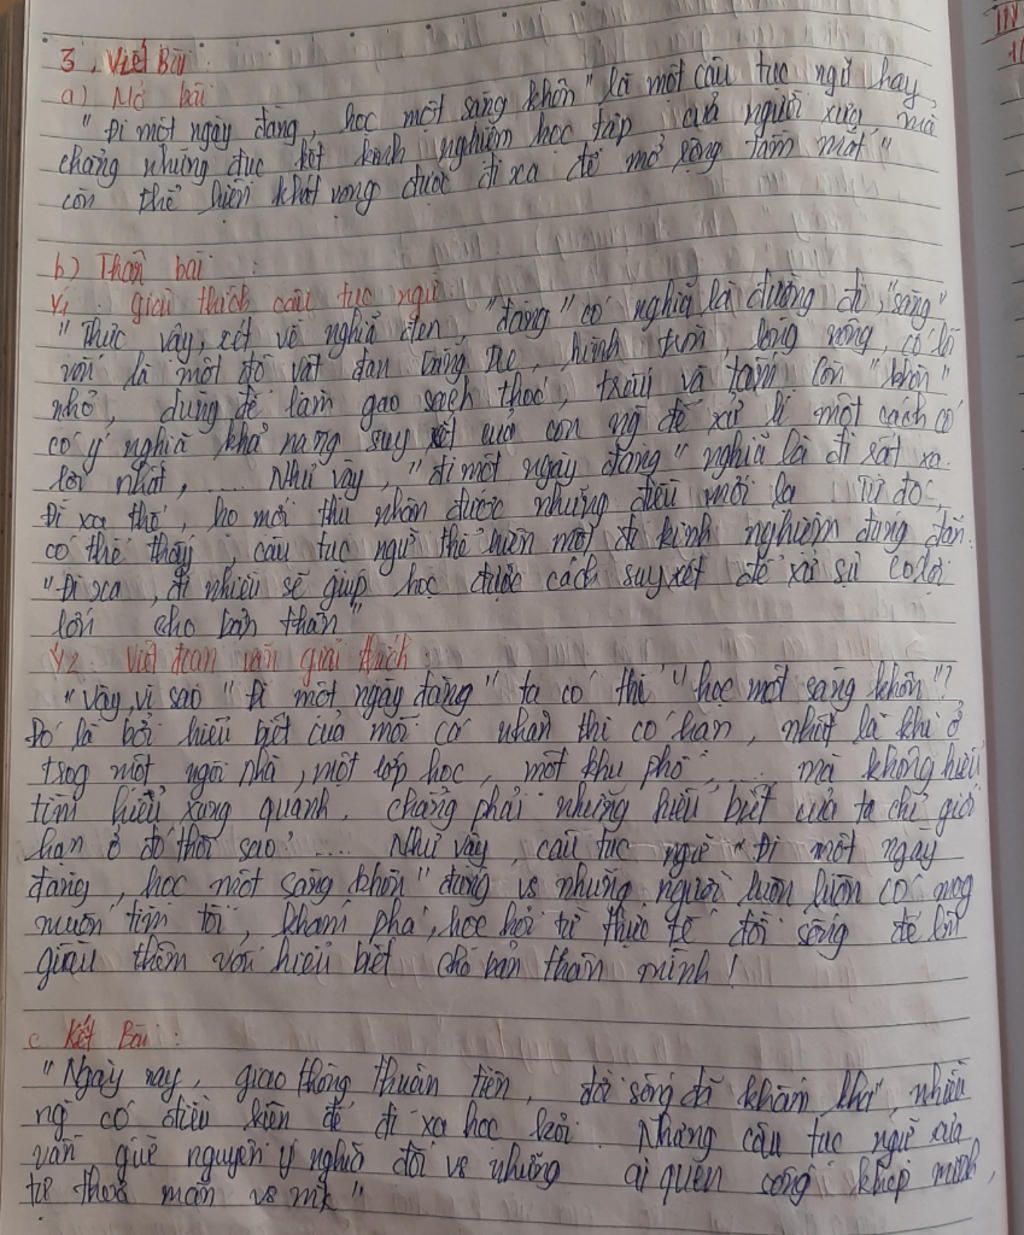 3, Viết Bài
a) Mở bài
"Đi một ngày đàng, học một sàng khôn" là một câu tục ngữ hay,
chẳng những đục kết kinh nghiệm học tập của người xưa mà
còn thể hiện khát vọng được đi xa để mở rộng tầm mắt"
b) Thân bài :
Y1 : giải thích câu tục ngữ.
"Thực vậy, xét về nghĩa đen, "đàng" có nghĩa là đường đi, "sàng"
vốn là một đồ vật đan bằng tre, hình tròn, lòng nông, có lỗ
nhỏ, dùng để làm gạo sạch thóc, trấu và tấm. Còn "khôn"
có ý nghĩa khả năng suy xét của con ng để xử lí một cách có
lợi nhất, .... Như vậy, "đi một ngày đàng" nghĩa là đi rất xa.
Đi xa thế, họ mới thu nhận được những điều mới lạ. Từ đó,
có thể thấy, câu tục ngữ thể hiện một kinh nghiệm đúng đắn.
"Đi xa, đi nhiều sẽ giúp học được cách suy xét để xử sự có lợi
lớn cho bản thân"
Y2. Viết đoạn văn giải thích :
"Vậy, vì sao "Đi một ngày đàng" ta có thể "học một sàng khôn"?
Đó là bởi hiểu biết của mỗi cá nhân thì có hạn, nhất là khi ở
trog một ngôi nhà, một lớp học, một khu phố, .... mà không hiểu
tìm hiểu xung quanh. Chẳng phải những hiểu biết của ta chỉ giới
hạn ở đó thôi sao? .... Như vậy, câu tục ngữ "Đi một ngày
đàng, học một sàng khôn" đúng vs những người luôn luôn có mog
muốn tìm tòi, khám phá, học hỏi từ thực tế đời sống để làm
giàu thêm vốn hiểu biết cho bản thân mình!
c Kết Bài :
"Ngày nay, giao thông thuận tiện, đời sống đã khấm khá, nhiều
ng có điều kiện để đi xa học hỏi. Nhưng câu tục ngữ của
vẫn giữ nguyên ý nghĩa đối vs những ai quen sống khép mình,
tự thoả mãn vs mk"